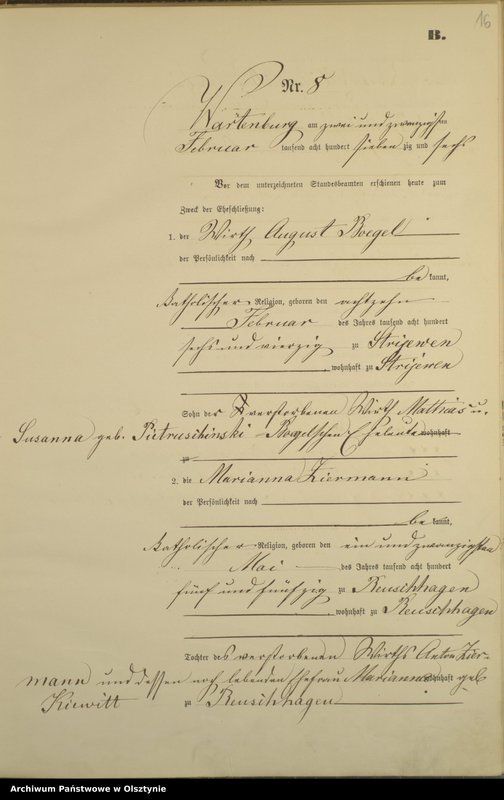 16
B.
Nr. 8
Wartenburg am zwei und zwanzigsten
Februar tausend acht hundert sieben zig und sechs
Vor dem unterzeichneten Standesbeamten erschienen heute zum
Zweck der Eheschließung:
1. der Wirth August Boegel
der Persönlichkeit nach
be kannt,
katholischer Religion, geboren den achtzehn
Februar des Jahres tausend acht hundert
sechs und vierzig zu Strijewen
, wohnhaft zu Strijewen
Sohn der verstorbenen Wirth Mathias u.
Susanna geb. Pietruschinski Boegelschen Eheleute wohnhaft
zu
2. die Marianna Ziermann
der Persönlichkeit nach
be kannt,
katholischer Religion, geboren den ein und zwanzigsten
Mai des Jahres tausend acht hundert
fünf und fünfzig zu Reuschhagen
, wohnhaft zu Reuschhagen
Tochter des verstorbenen Wirths Anton Zier-
mann und dessen noch lebenden Ehefrau Marianna wohnhaft geb
Kiewitt zu Reuschhagen
Archiwum Państwowe w Olsztynie